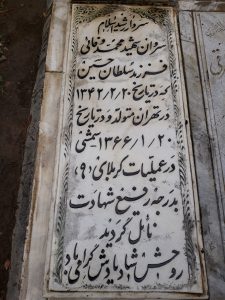 سردار رشید اسلام
شهید محمد
فرزند سلطان حسین
که در تاریخ ۱۳۴۲/۲/۲۰
در تهران متولد و در تاریخ
۱۳۶۶/۱/۲۰ شمسی
در عملیات کربلای
بدرجه رفیع شهادت
نائل گردید
روحش شاد یادش گرامی باد